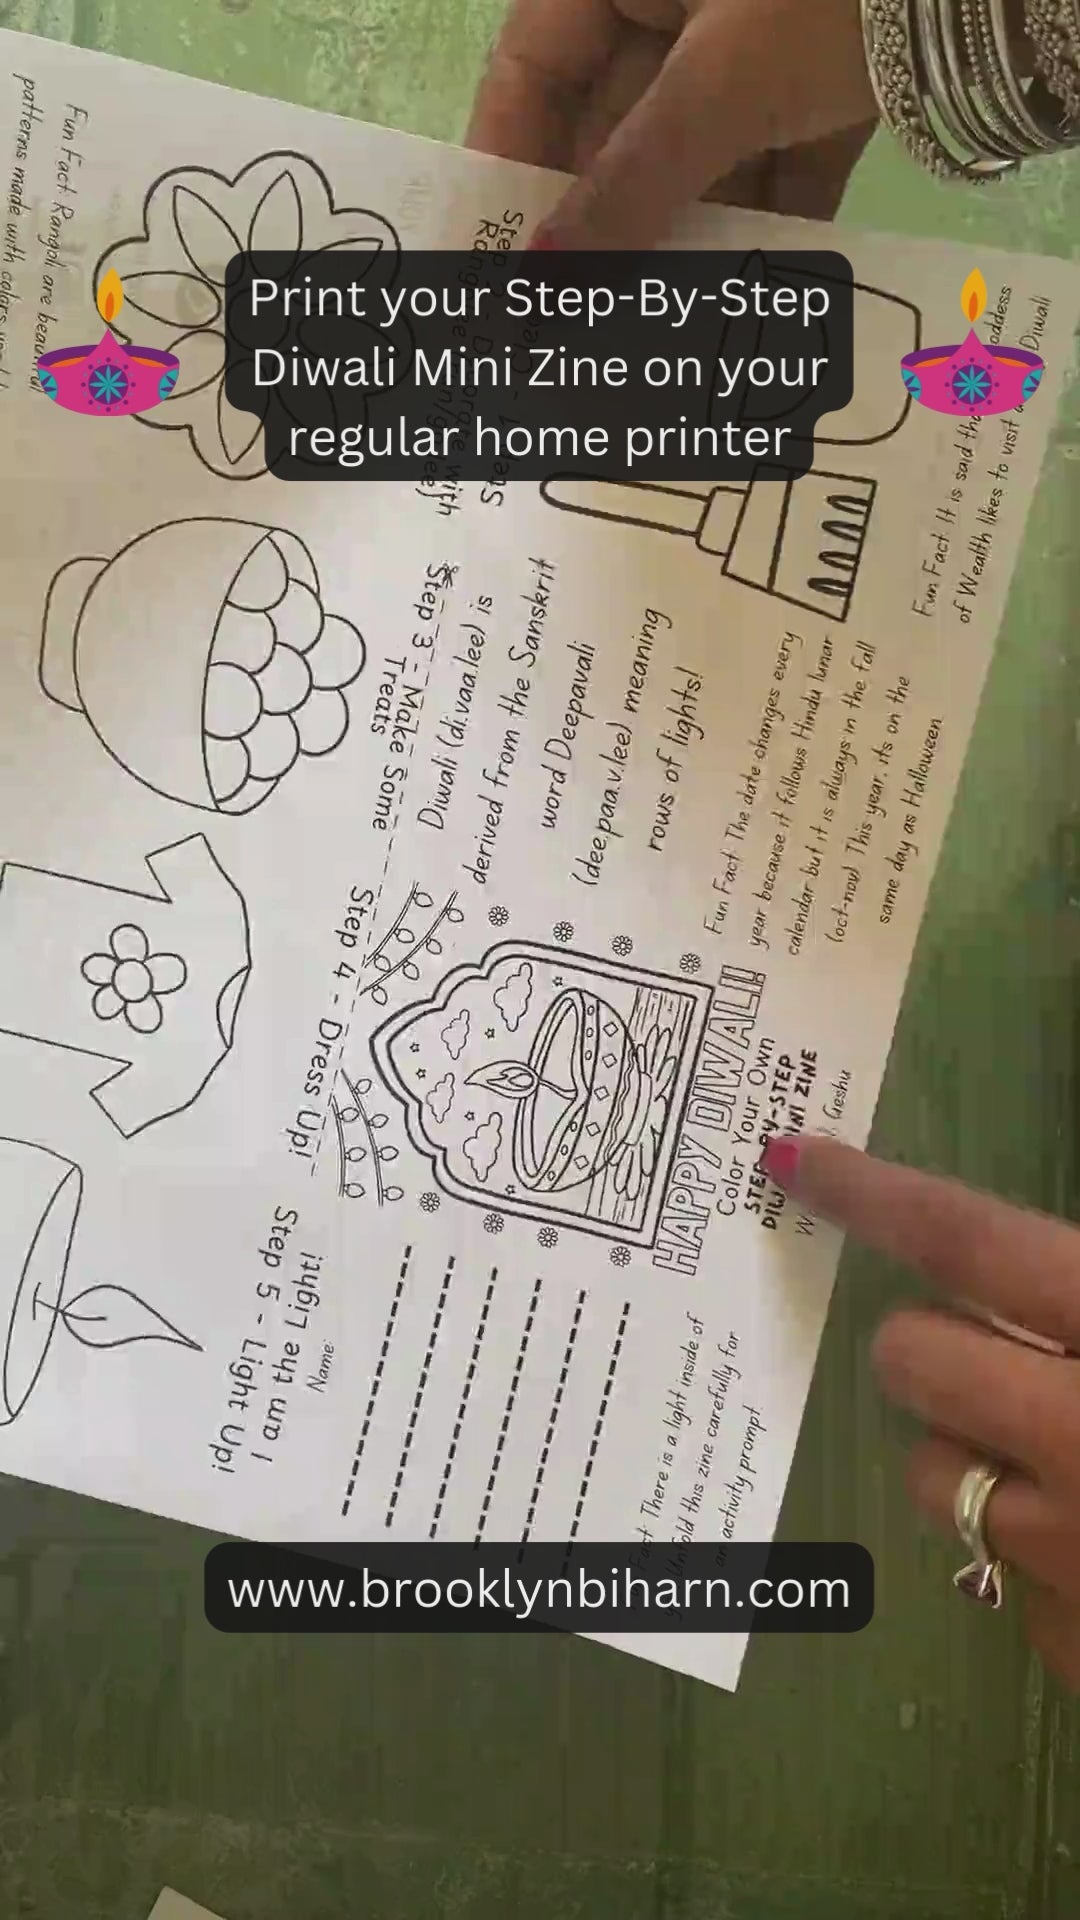 Print your Step-By-Step
Diwali Mini Zine on your
regular home printer
Fun Fact: Rangoli are beautiful
patterns made with colors
Step 3 - Make Some
Treats
Step 4 - Dress Up!
Step 5 - Light Up!
I am the Light!
Name:
Diwali (di.vaa.lee) is
derived from the Sanskrit
word Deepavali
(dee.paa.v.lee) meaning
rows of lights!
Fun Fact: It is said
of Wealth likes to visit
Diwali
Fun Fact: The date changes every
year because it follows Hindu lunar
calendar but it is always in the fall
(oct-nov) This year, its on the
same day as Halloween
HAPPY DIWALI!
Color Your Own
STEP-BY-STEP
MINI ZINE
Geshu
Fact: There is a light inside of
Unfold this zine carefully for
an activity prompt!
www.brooklynbiharn.com